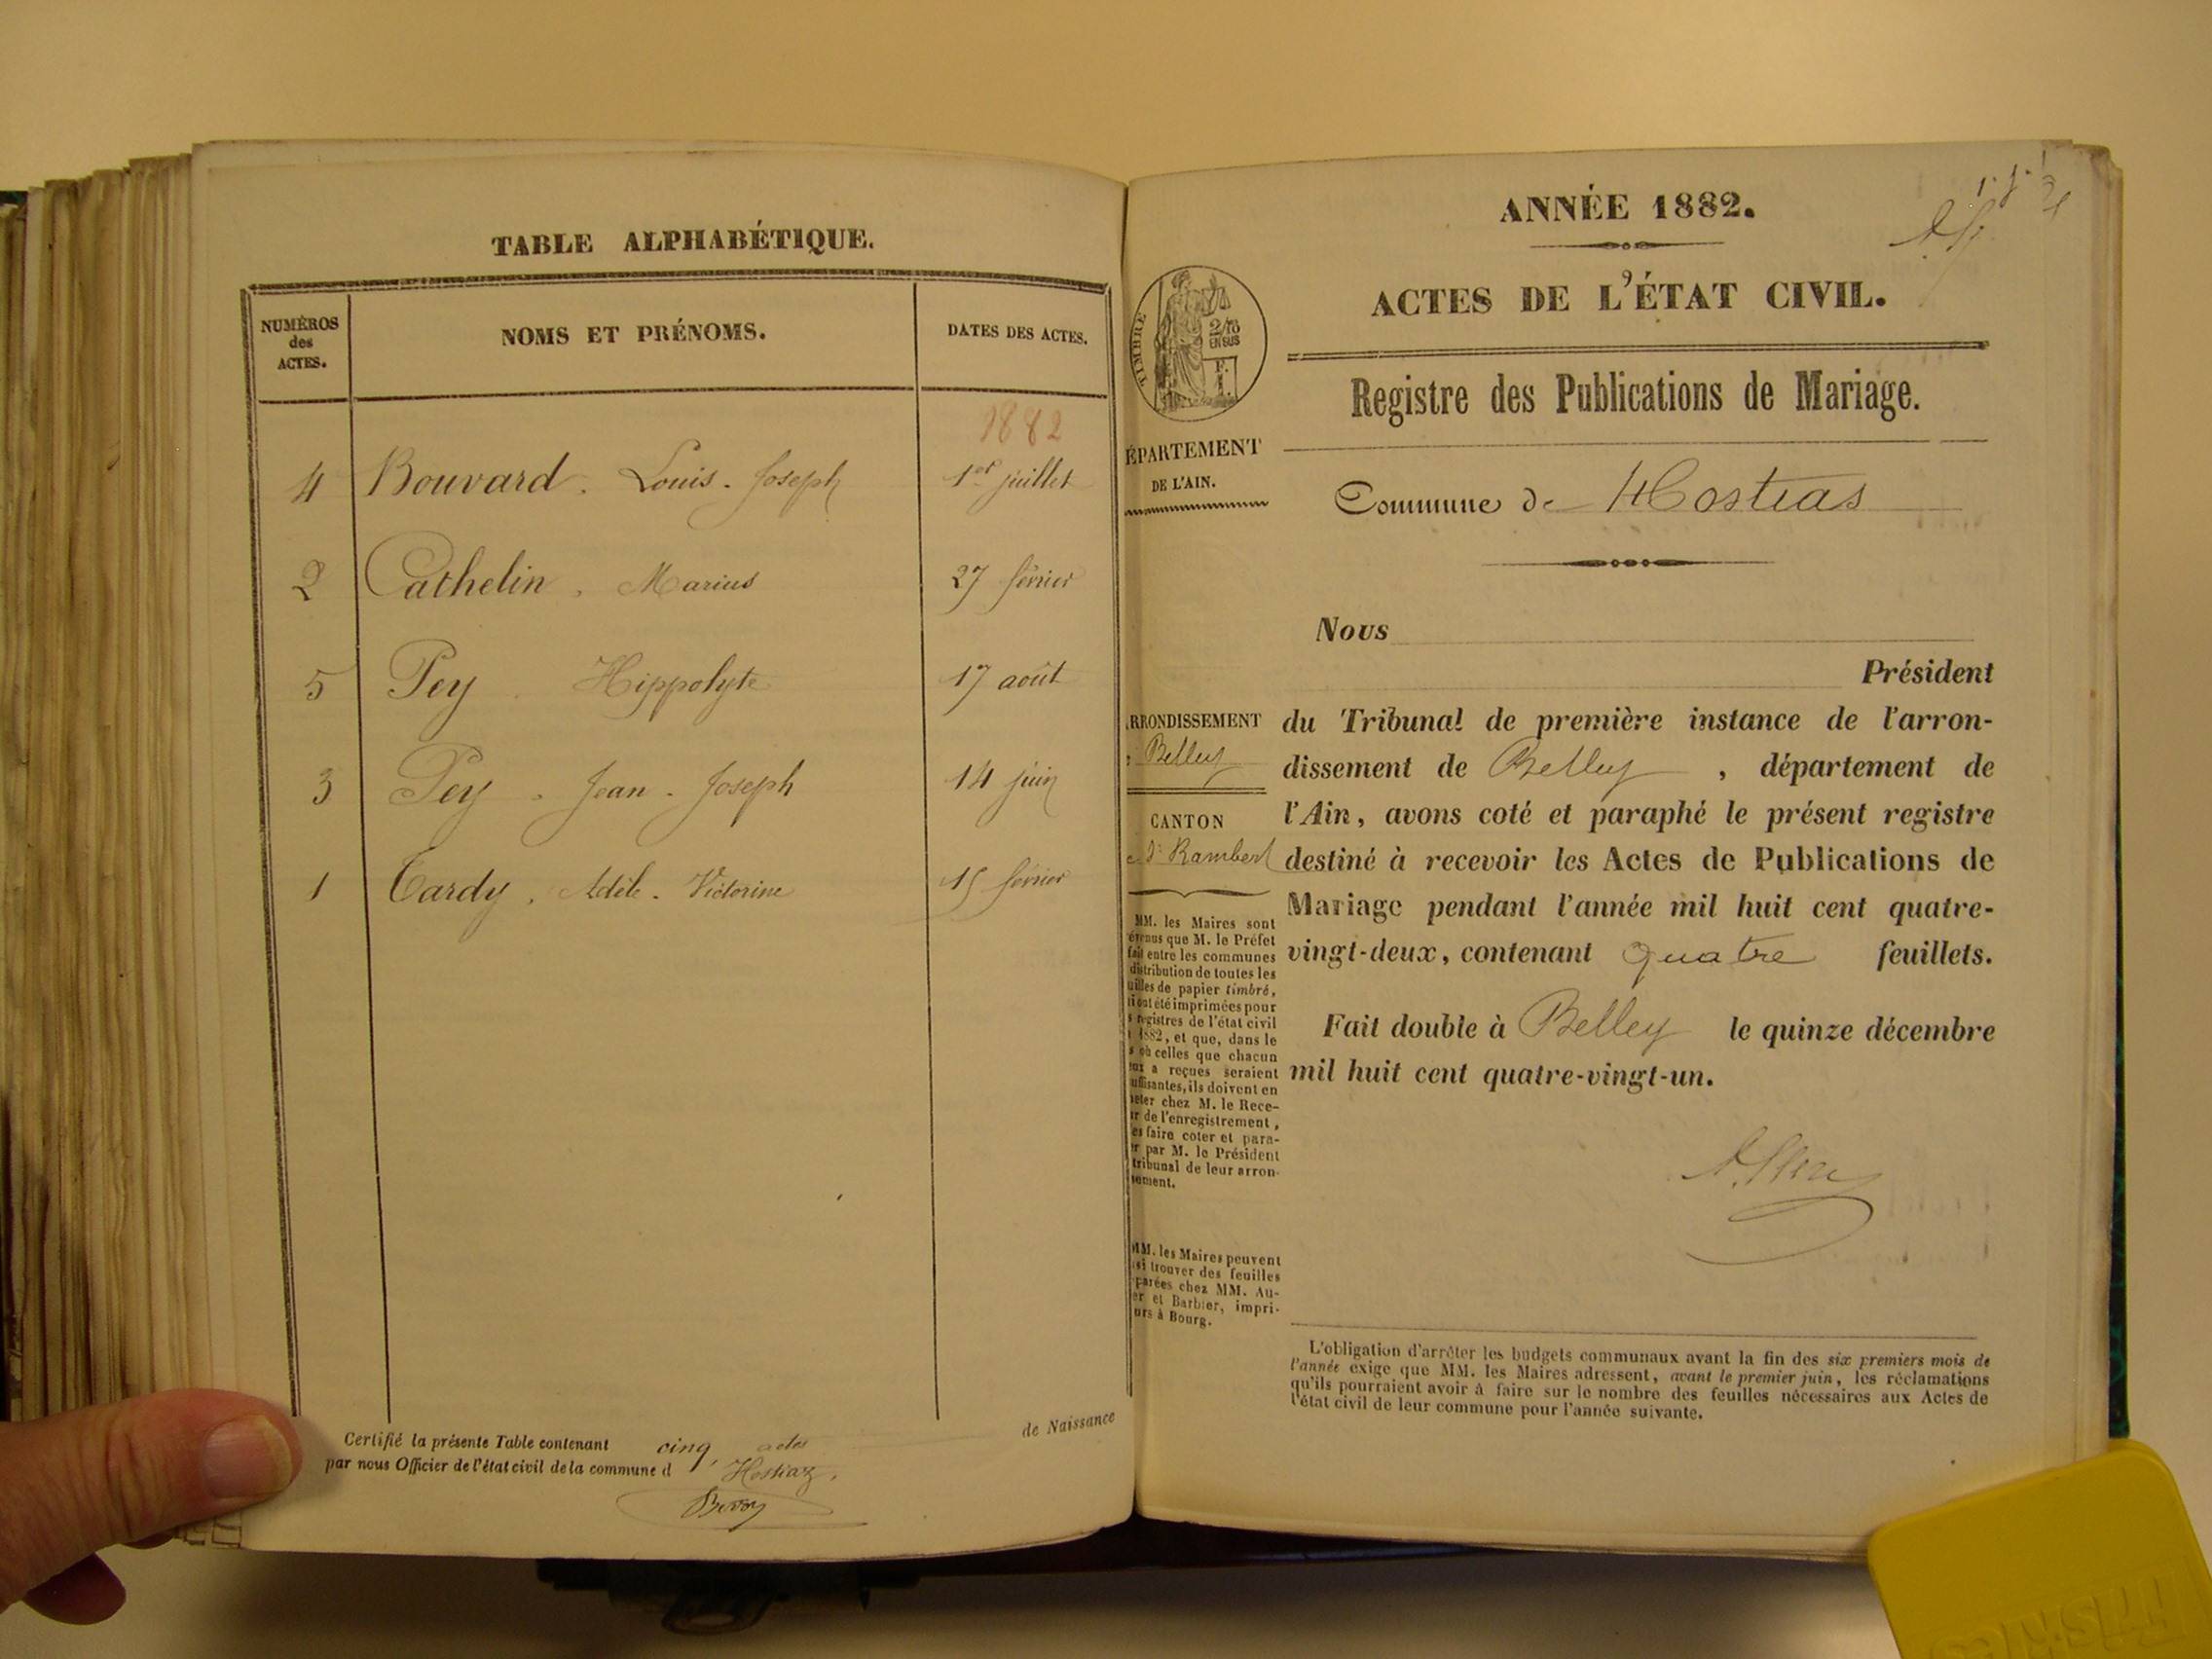 TABLE ALPHABÉTIQUE.
NUMÉROS des ACTES. NOMS ET PRÉNOMS. DATES DES ACTES.
1882
4 Bouvard. Louis. Joseph 1er juillet
2 Cathelin. Marius 27 février
5 Pey Hippolyte 17 août
3 Pey. Jean. Joseph 14 juin
1 Tardy. Adèle. Victorine 15 février
Certifié la présente Table contenant cinq actes de Naissance
par nous Officier de l'état civil de la commune d Hostiaz.
ANNÉE 1882.
ACTES DE L'ÉTAT CIVIL.
Registre des Publications de Mariage.
Commune de Hostias
TIMBRE
2/10
EN SUS
F.
1.
ÉPARTEMENT
DE L'AIN.
RRONDISSEMENT
Belley
CANTON
St Rambert
MM. les Maires sont
évenus que M. le Préfet
fait entre les communes
distribution de toutes les
uilles de papier timbré,
i ont été imprimées pour
s registres de l'état civil
1882, et que, dans le
s où celles que chacun
eux a reçues seraient
uffisantes, ils doivent en
heter chez M. le Rece-
ur de l'enregistrement,
es faire coter et para-
r par M. le Président
tribunal de leur arron-
sement.
MM. les Maires peuvent
ssi trouver des feuilles
parées chez MM. Au-
er et Barbier, impri-
urs à Bourg.
Nous
Président
du Tribunal de première instance de l'arron-
dissement de Belley, département de
l'Ain, avons coté et paraphé le présent registre
destiné à recevoir les Actes de Publications de
Mariage pendant l'année mil huit cent quatre-
vingt-deux, contenant quatre feuillets.
Fait double à Belley le quinze décembre
mil huit cent quatre-vingt-un.
L'obligation d'arrêter les budgets communaux avant la fin des six premiers mois de
l'année exige que MM. les Maires adressent, avant le premier juin, les réclamations
qu'ils pourraient avoir à faire sur le nombre des feuilles nécessaires aux Actes de
l'état civil de leur commune pour l'année suivante.